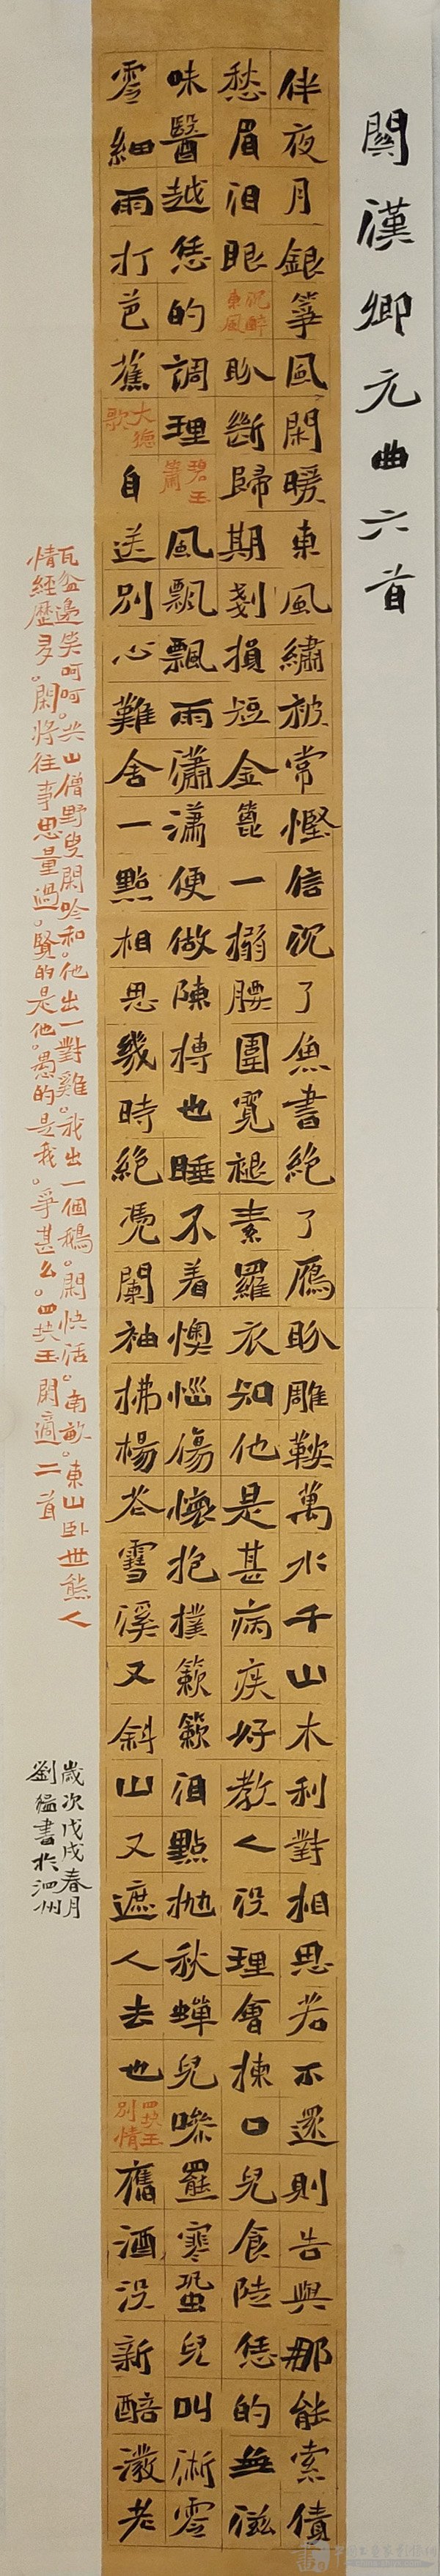 關漢卿元曲六首
伴夜月銀箏鳳閑暖東風繡被常慳信沉了魚書絕了雁盼雕鞍萬水千山本利對相思若不還則告與那能索債
愁眉淚眼沉醉東風盼斷歸期劃損短金篦一搦腰圍寬褪素羅衣知他是甚病疾好教人沒理會揀口兒食陡恁的無滋
味醫越恁的調理碧玉簫風飄飄雨瀟瀟便做陳摶也睡不着懊惱傷懷抱撲簌簌淚點拋秋蟬兒噪罷寒蛩兒叫淅零
零細雨打芭蕉大德歌自送別心難舍一點相思幾時絕凭闌袖拂楊花雪溪又斜山又遮人去也四塊玉別情舊酒沒新醅潑老
瓦盆邊笑呵呵。共山僧野叟閑吟和。他出一對雞。我出一個鵝。閑快活。南畝。東山臥世態人
情經歷多。閑將往事思量過。賢的是他。愚的是我。爭甚么。四块玉閑適二首
歲次戊戌春月
劉猛書於泗州